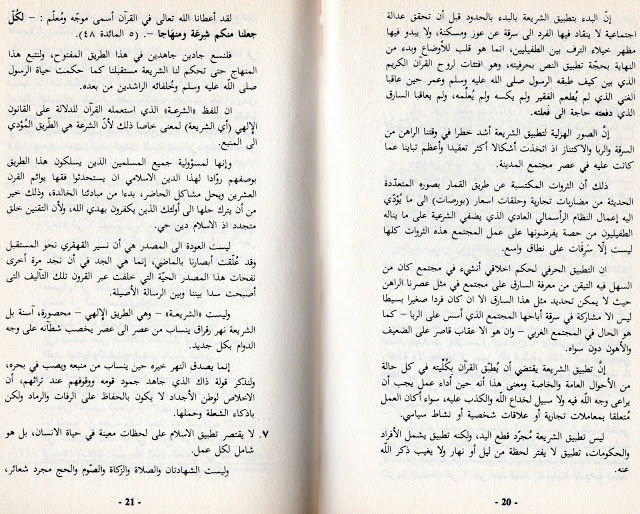 إنّ البدء بتطبيق الشريعة بالبدء بالحدود قبل أن تحقق عدالة
اجتماعية لا ينقاد فيها الفرد الى سرقة عن عوز ومسكنة، ولا يبدو فيها
مظهر خيلاء الترف بين الطفيليين، انما هو قلب للأوضاع وبدء من
النهاية بحجّة تطبيق النص بحرفيته، وهو افتئات لروح القرآن الكريم
الذي بين كيف طبقه الرسول صلى الله عليه وسلم وعمر حين عاقبا
الغني الذي لم يُطعم الفقير ولم يكسه ولم يُعلّمه، ولم يعاقبا السارق
الذي دفعته حاجة الى فَعلته.
إنّ الصور الهزلية لتطبيق الشريعة أشد خطرا في وقتنا الراهن من
السرقة والربا والاكتناز اذ اتخذت أشكالا أكثر تعقيدا وأعظم تباينا عما
كانت عليه في عصر مجتمع المدينة.
ذلك أن الثروات المكتسبة عن طريق القمار بصوره المتعدّدة
الحديثة من مضاربات تجارية وحلقات اسعار (بورصات) الى ما يُؤدّي
اليه إعمال النظام الرأسمالي العادي الذي يضفي الشرعية على ما يناله
الطفيليون من حصة يفرضونها على عمل المجتمع هذه الثروات كلها
ليست إلّا سَرقات على نطاق واسع.
ان التطبيق الحرفي لحكم اخلاقي أنشىء في مجتمع كان من
السهل فيه التيقن من معرفة السارق على مجتمع في مثل عصرنا الراهن
حيث لا يمكن تحديد مثل هذا السارق الا ان كان فردا صغيرا بسيطا
ليس الا مشاركة في سرقة أباحها المجتمع الذي أسس على الربا – كما
هو الحال في المجتمع الغربي – وان هو الا عقاب قاصر على الضعيف
والأهون دون سواه.
إنّ تطبيق الشريعة يقتضي أن يُطبّق القرآن بكُلّيته في كل حالة
من الأحوال العامة والخاصة ومعنى هذا أنه حين أداء عمل يجب أن
يراعى وجه اللّه فيه ولا سبيل لخداع اللّه والكذب عليه، سواء أكان العمل
مُتعلقا بمعاملات تجارية أو علاقات شخصية أو نشاط سياسي.
ليس تطبيق الشريعة مُجرّد قطع اليد، ولكنه تطبيق يشمل الأفراد
والحكومات، تطبيق لا يفتر لحظة من ليل أو نهار ولا يغيب ذكر اللّه
عنه.
- 20 -
لقد أعطانا الله تعالى في القرآن أسمى موجّه ومُعلّم : – لكُلّ
جعلنا منكم شِرعَة ومنهَاجا –. (٥ المائدة ٤٨).
فلنسع جادين جاهدين في هذا الطريق المفتوح، ولنتبع هذا
المنهاج حتى تحكم لنا الشريعة مستقبلنا كما حكمت حياة الرسول
صلى اللّه عليه وسلم وخُلفائه الراشدين من بعده.
ان للفظ «الشرعـة» الذي استعمله القرآن للدلالة على القانون
الإلهي (أي الشريعة) لمعنى خاصا ذلك لأنّ الشرعة هي الطّريق المُؤدي
الى المنبع.
وإنها لمسؤولية جميع المسلمين الذين يسلكون هذا الطريق
بوصفهم روّادا لهذا الدين الاسلامي ان يستحدثوا فقها يوائم القرن
العشرين ويحل مشاكل الحاضر، بدءا من مبادئنا الخالدة، وذلك خير
من أن يترك حلها الى أولئك الذين يكفرون بهدي الله، ولأن التقنين خلق
متجدد اذ الاسلام دين حي.
ليست العودة الى المصدر هي أن نسير القهقري نحو المستقبل
وقد عُلّقت أبصارنا بالماضي، إنما هي الجد في أن نجد مرة أخرى
نفحات هذا المصدر الحيّة التي خلفت عبر القرون تلك التآليف التى
أصبحت سدا بيننا وبين الرسالة الأصيلة.
وليست «الشريعـة» – وهي الطريق الإلهي – محصورة، آسنة بل
الشريعة نهر رقراق ينساب من عصر الى عصر يخصب شطآنه على وجه
الدوام بكل جديد.
إنما يصدق النهر خيره حين ينساب من منبعه ويصب في بحره،
ولنذكر قولة ذاك الذي جاهد جمود قومه ووقوفهم عند تراثهم، أن
الاخلاص لوطن الأجداد لا يكون بالحفاظ على الرفات والرماد ولكن
باذكاء الشعلة وحملها.
٧. لا يقتصر تطبيق الاسلام على لحظات معينة في حياة الانسان، بل هو
شامل لكل عمل.
وليست الشهادتان والصلاة والزّكاة والصّوم والحج مجرد شعائر،
- 21 -